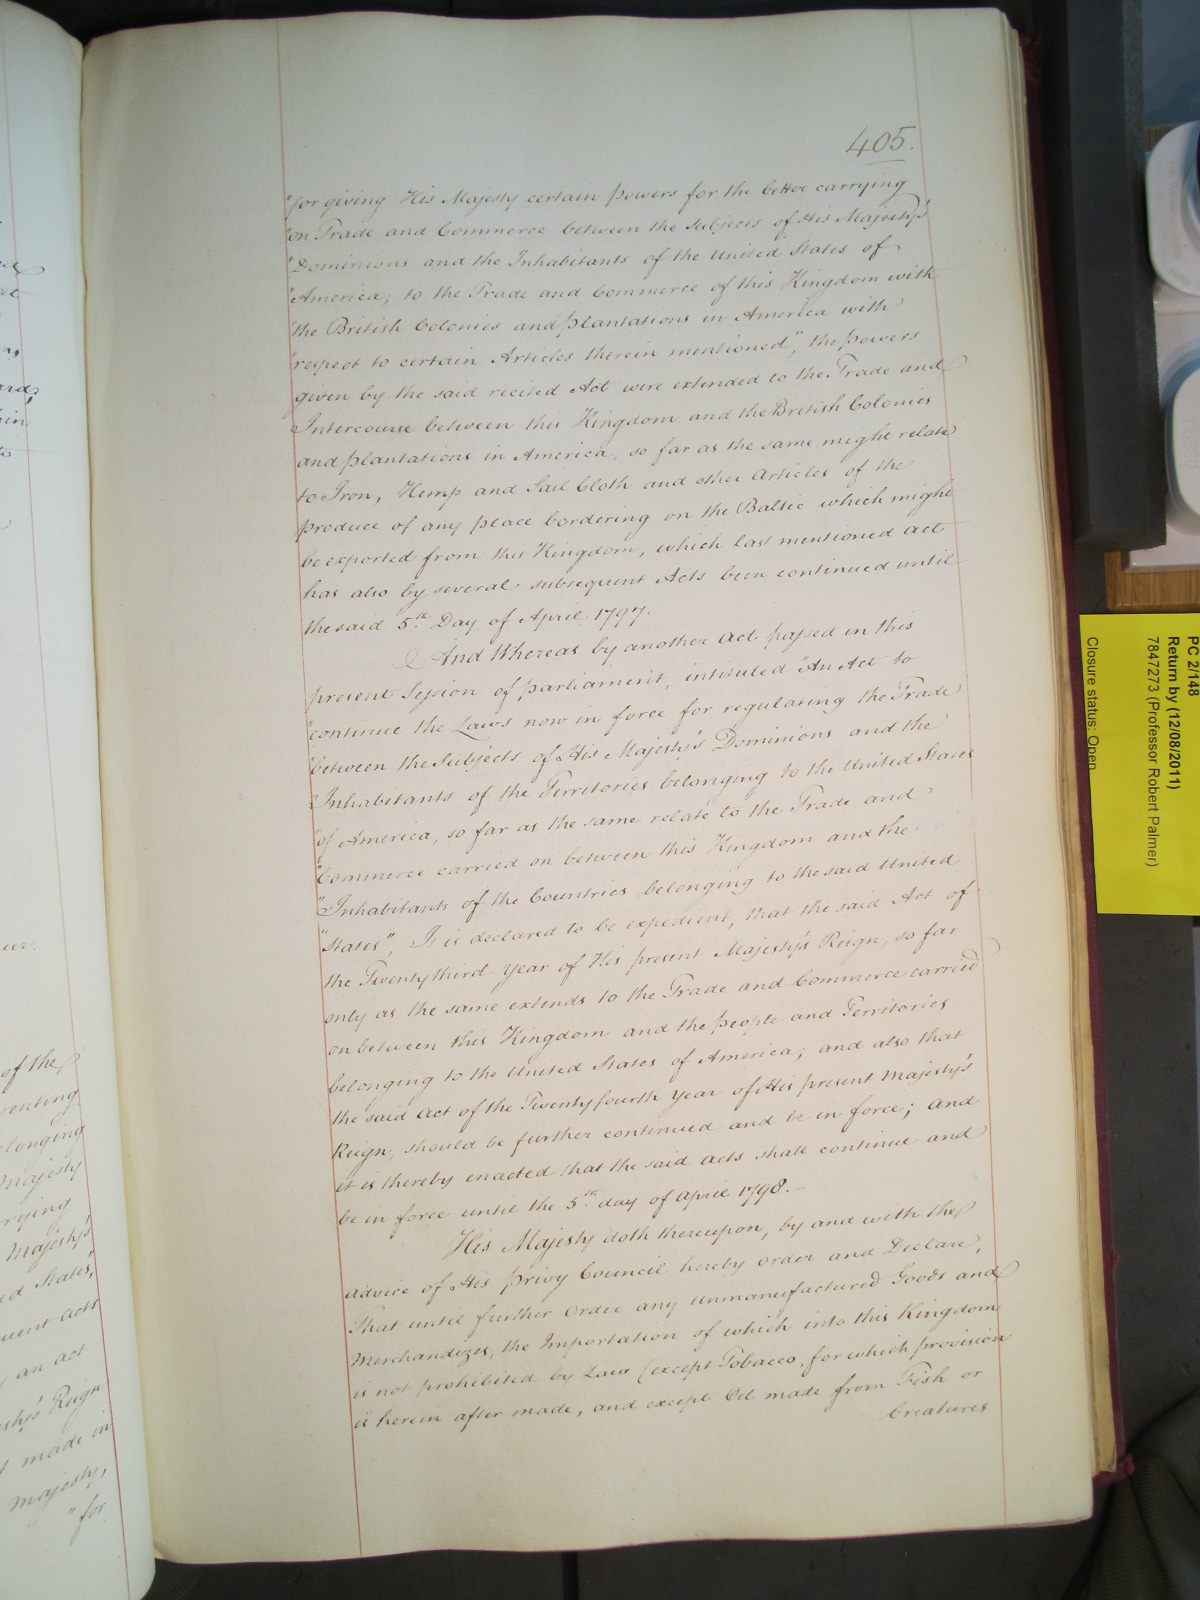 405.
"for giving His Majesty certain Powers for the better carrying
"on Trade and Commerce between the Subjects of His Majesty's
"Dominions and the Inhabitants of the United States of
"America; to the Trade and Commerce of this Kingdom with
"the British Colonies and Plantations in America with
"respect to certain Articles therein mentioned", the Powers
given by the said recited Act were extended to the Trade and
Intercourse between this Kingdom and the British Colonies
and Plantations in America, so far as the same might relate
to Iron, Hemp and Sail Cloth and other Articles of the
produce of any place bordering on the Baltic which might
be exported from this Kingdom, which last mentioned Act
has also by several subsequent Acts been continued until
the said 5th Day of April 1797.
And Whereas by another Act passed in this
present Session of Parliament, intituled "An Act to
"continue the Laws now in force for regulating the Trade
"between the Subjects of His Majesty's Dominions and the
"Inhabitants of the Territories belonging to the United States
"of America, so far as the same relate to the Trade and
"Commerce carried on between this Kingdom and the
"Inhabitants of the Countries belonging to the said United
"States", It is declared to be expedient, that the said Act of
the Twenty third Year of His present Majesty's Reign, so far
only as the same extends to the Trade and Commerce carried
on between this Kingdom and the people and Territories
belonging to the United States of America; and also that
the said Act of the Twenty fourth Year of His present Majesty's
Reign, should be further continued and be in force; And
it is thereby enacted that the said Acts shall continue and
be in force until the 5th day of April 1798.—
His Majesty doth thereupon, by and with the
Advice of His Privy Council, hereby Order and Declare,
That until further Order any Unmanufactured Goods and
Merchandizes, the Importation of which into this Kingdom
is not prohibited by Law (except Tobacco, for which provision
is herein after made, and except Oil made from Fish or
Creatures
of the
venting
longing
Majesty
rying
Majesty's
ed States,"
uent Acts
an Act
esty's Reign
made in
Majesty,
"for
PC 2/148
Return by (12/08/2011)
7847273 (Professor Robert Palmer)
Closure status: Open